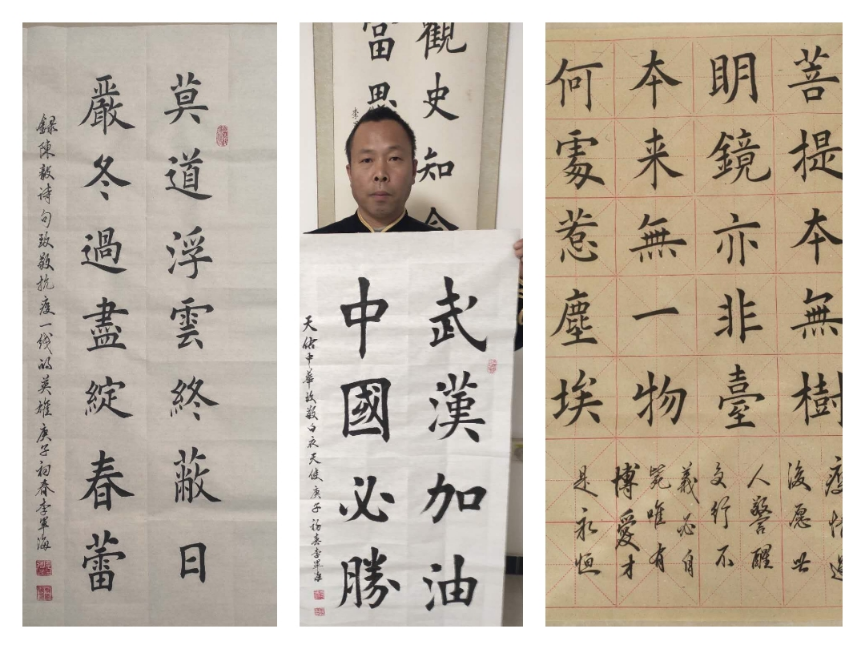 莫道浮雲終蔽日
嚴冬過盡綻春蕾
録陳毅诗句致敬抗疫一线的英雄庚子初春李軍海
觀史知今
當思
武漢加油
中國必勝
天佑中華致敬白衣天使庚子初春李军海
菩提本無樹
明鏡亦非臺
本来無一物
何處惹塵埃
疫情過
後愿世
人警醒
多行不
義必自
斃唯有
博愛才
是永恒